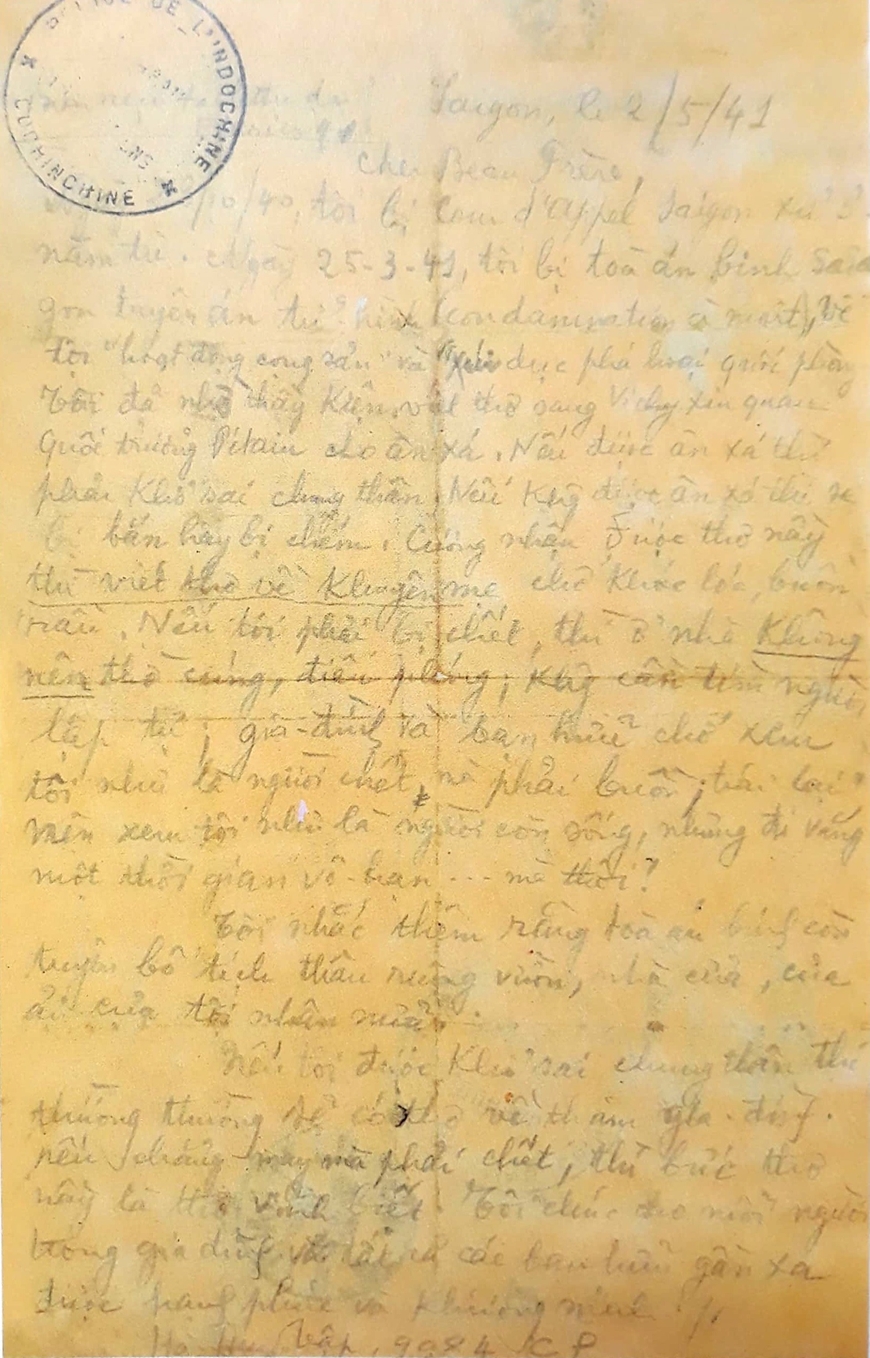 DE L'INDOCHINE
COCHINCHINE
Saigon, le 2/5/41
Cher Beau Frère,
/10/40, tôi bị Cour d'Appel Saigon xử 5
năm tù. Ngày 25-3-41, tôi bị toà án binh Sai
gon tuyên án tử hình (condamnation à mort), về
tội "hoạt động cộng sản" và "xúi dục phá hoại quốc phòng
Tôi đã nhờ thầy Kiện viết thơ sang Vichy xin quan
Quốc trưởng Pétain cho ân xá. Nếu được ân xá thì
phải Khổ sai chung thân. Nếu Khg được ân xá thì sẽ
bị bắn hay bị chém. Cương nhận được thơ nầy
thì viết thơ về Khuyên mẹ chớ Khóc lóc, buồn
rầu. Nếu tôi phải bị chết, thì ở nhà Không
nên thờ cúng, điếu phúng; Khg cần tìm người
lập tự; gia-đình và bạn hữu chớ xem
tôi như là người chết mà phải buồn; trái lại
nên xem tôi như là người còn sống, nhưng đi vắng
một thời gian vô-hạn --- mà thôi!
Tôi nhắc thêm rằng toà án binh còn
tuyên bố tịch thâu ruộng vườn, nhà cửa, của
cải của tội nhân nữa.
Nếu tôi được Khổ sai chung thân thì
thường thường sẽ có thơ về thăm gia-đình.
nếu chẳng may mà phải chết, thì bức thơ
nầy là thơ vĩnh biệt. Tôi chúc cho mỗi người
trong gia đình và tất cả các bạn hữu gần xa
được hạnh phúc và Khương ninh
Hà Huy Tập, 9084 CP